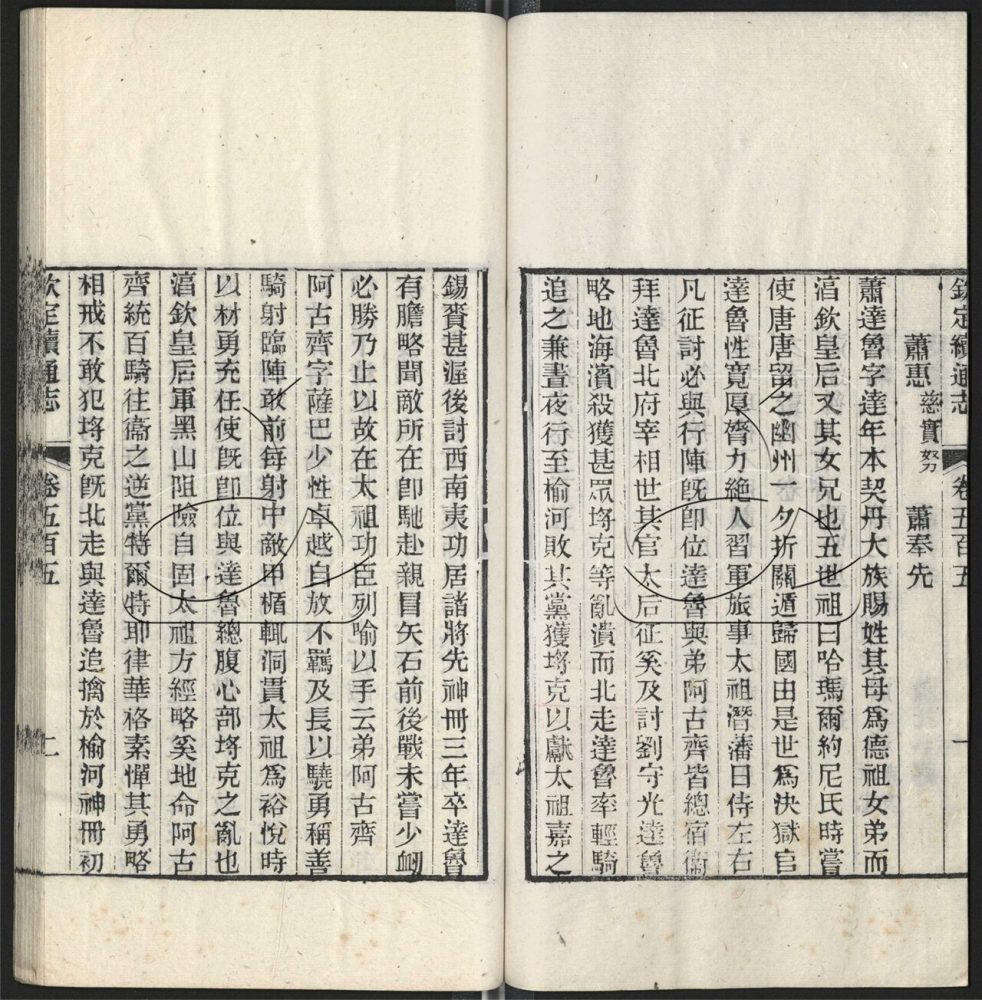 欽定續通志 卷五百五 一
蕭惠 慈實努 蕭奉先
蕭達魯字達年本契丹大族賜姓其母爲德祖女弟而
湻欽皇后又其女兄也五世祖曰哈瑪爾約尼氏時嘗
使唐唐留之幽州一夕折關遁歸國由是世爲決獄官
達魯性寬厚膂力絶人習軍旅事太祖潛藩日侍左右
凡征討必與行陣旣卽位達魯與弟阿古齊皆總宿衞
拜達魯北府宰相世其官太后征奚及討劉守光達魯
略地海濱殺獲甚眾埓克等亂潰而北走達魯率輕騎
追之兼晝夜行至榆河敗其黨獲埓克以獻太祖嘉之
錫賚甚渥後討西南夷功居諸將先神冊三年卒達魯
有膽略聞敵所在卽馳赴親冒矢石前後戰未嘗少衂
必勝乃止以故在太祖功臣列喻以手云弟阿古齊
阿古齊字薩巴少性卓越自放不羈及長以驍勇稱善
騎射臨陣敢前每射中敵甲楯輒洞貫太祖爲裕悅時
以材勇充任使旣卽位與達魯總腹心部埓克之亂也
湻欽皇后軍黑山阻險自固太祖方經略奚地命阿古
齊統百騎往衞之逆黨特爾特耶律華格素憚其勇略
相戒不敢犯埓克旣北走與達魯追擒於榆河神冊初
欽定續通志 卷五百五